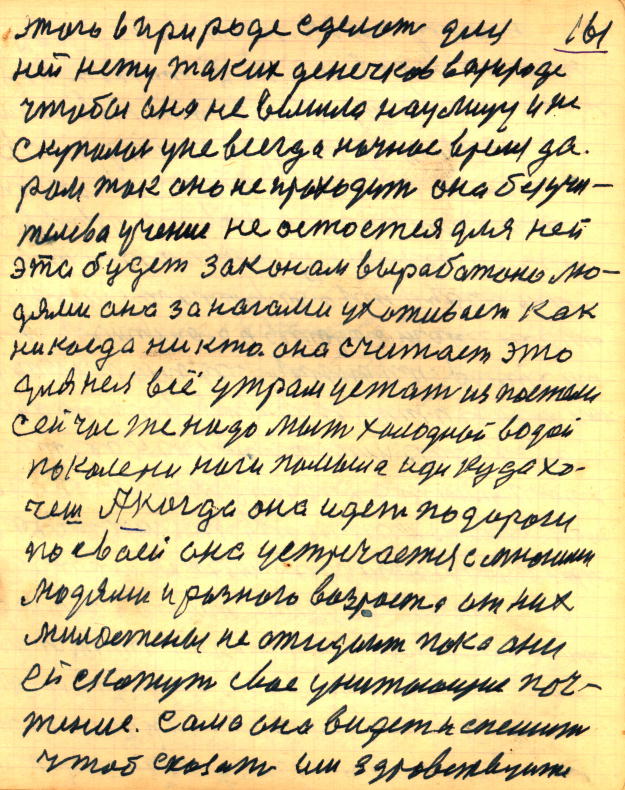 этого в природе сделат для 161
ней нету таких денечков в природе
чтобы она не вышла на улицу и не
скупалас уже всегда ночное время да.
ром так оно не проходит она без учи-
телева учение не остоется для ней
это будет законам выработоно лю-
дями она за ногами ухаживает как
никогда никто. она считает это
для нея всё утрам устат из постели
сейчас же надо мыт холодной водой
по колени ноги помыла иди куда хо-
чеш А когда она идет по дороги
по своей она устречается с многими
людями и разного возроста от них
милостены не отидает пока они
ей скажут свое унитающие поч-
тение. сама она видет и спешит
чтоб сказать им здравствуйте